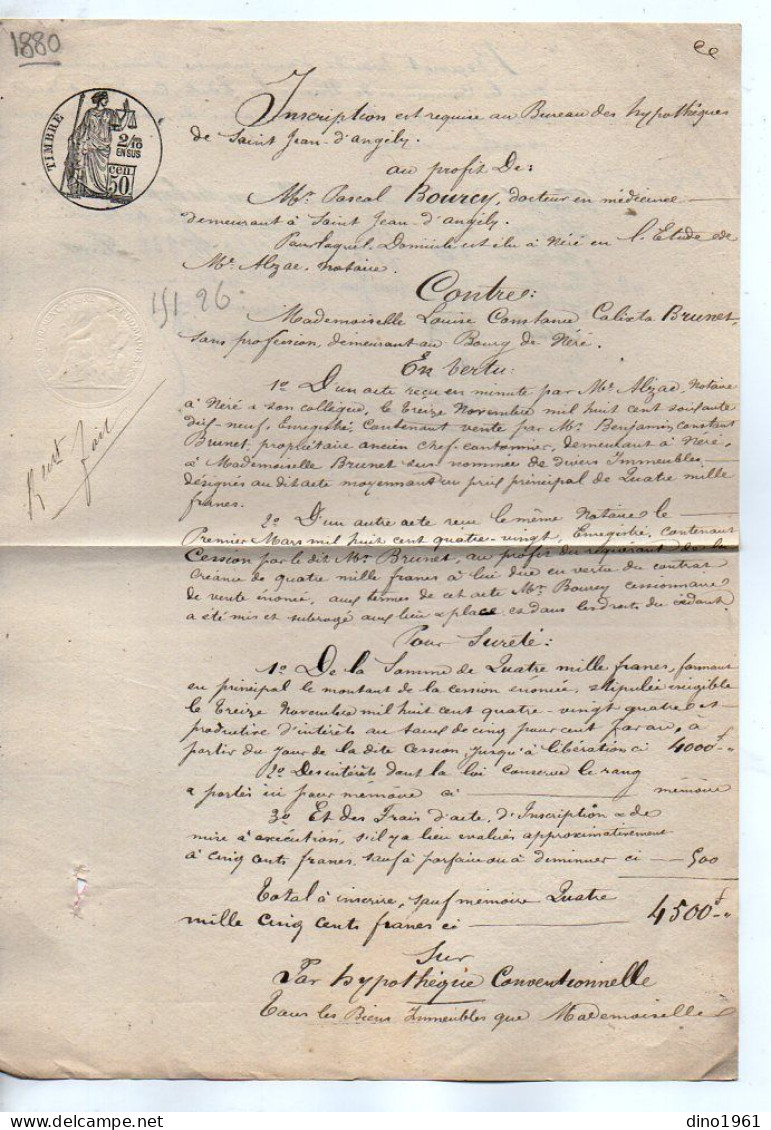 1880
TIMBRE
2/10
EN SUS
50 cen.
Inscription est requise au Bureau des hypothèques
de Saint Jean-d'angély.
au profit De:
Mr. Pascal Bourcy, docteur en médecine
demeurant à Saint Jean-d'angély.
Pour lequel Domicile est élu à Néré en l'Etude de
Me. Alzac, notaire.
151 26
Contre:
Mademoiselle Louise Constance Calixta Brunet,
sans profession, demeurant au Bourg de Néré.
En Vertu:
1o D'un acte reçu en minute par Me. Alzac, Notaire
à Néré & son collègue, le treize Novembre mil huit cent soixante
dix-neuf, Enregistré, Contenant vente par Mr. Benjamin constant
Brunet, propriétaire ancien chef-cantonnier, demeurant à Néré,
à Mademoiselle Brunet sus nommée de divers Immeubles
désignés au dit acte moyennant un prix principal de Quatre mille
francs.
2o D'un autre acte reçu le même Notaire le
Premier Mars mil huit cent quatre-vingt, Enregistré, contenant
Cession par le dit Mr. Brunet, au profit du requérant de la
Créance de quatre mille francs à lui due en vertu du contrat
de vente énoncé, aux termes de cet acte Mr. Bourcy cessionnaire
a été mis et subrogé aux lieu & place et dans les droits du cédant.
Pour Sureté:
1o De la Somme de Quatre mille francs, formant
en principal le montant de la cession énoncée, stipulée exigible
le treize Novembre mil huit cent quatre-vingt quatre et
productive d'intérêts au taux de cinq pour cent par an, à
partir du jour de la dite Cession jusqu'à libération ci 4000f "
2o Des intérêts dont la loi conserve le rang
& portés ici pour mémoire ci mémoire
3o Et des Frais d'acte, d'Inscription & de
mise à exécution, s'il y a lieu évalués approximativement
à cinq cents francs sauf à parfaire ou à diminuer ci 500
Total à inscrire, sauf mémoire Quatre
mille cinq cents francs ci 4500f "
Sur
Par hypothèque Conventionnelle
Tous les Biens Immeubles que Mademoiselle
dino1961